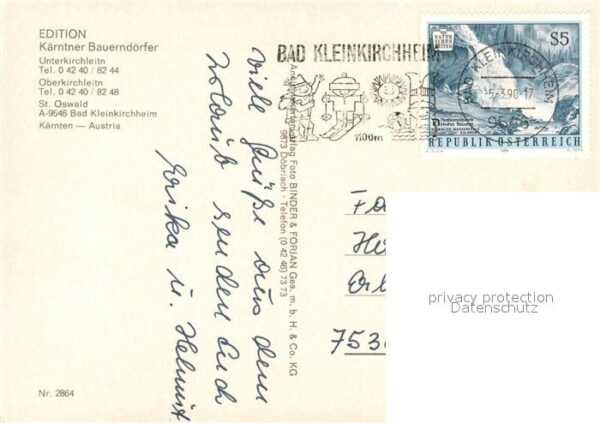 EDITION
Kärntner Bauerndörfer
Unterkirchleitn
Tel. 0 42 40 / 82 44
Oberkirchleitn
Tel. 0 42 40 / 82 48
St. Oswald
A-9546 Bad Kleinkirchheim
Kärnten – Austria
Nr. 2864
Viele Grüße aus dem
Urlaub senden Euch
Erika u. Helmut
Foto BINDER & FORJAN Ges. m. b. H. & Co. KG
9873 Döbriach · Telefon (0 42 46) 73 73
BAD KLEINKIRCHHEIM
1100m
BAD KLEINKIRCHHEIM
-5.-3.90-17
9546
NATUR
S5
Nationalpark
Hohe Tauern
REPUBLIK ÖSTERREICH
753
privacy protection
Datenschutz